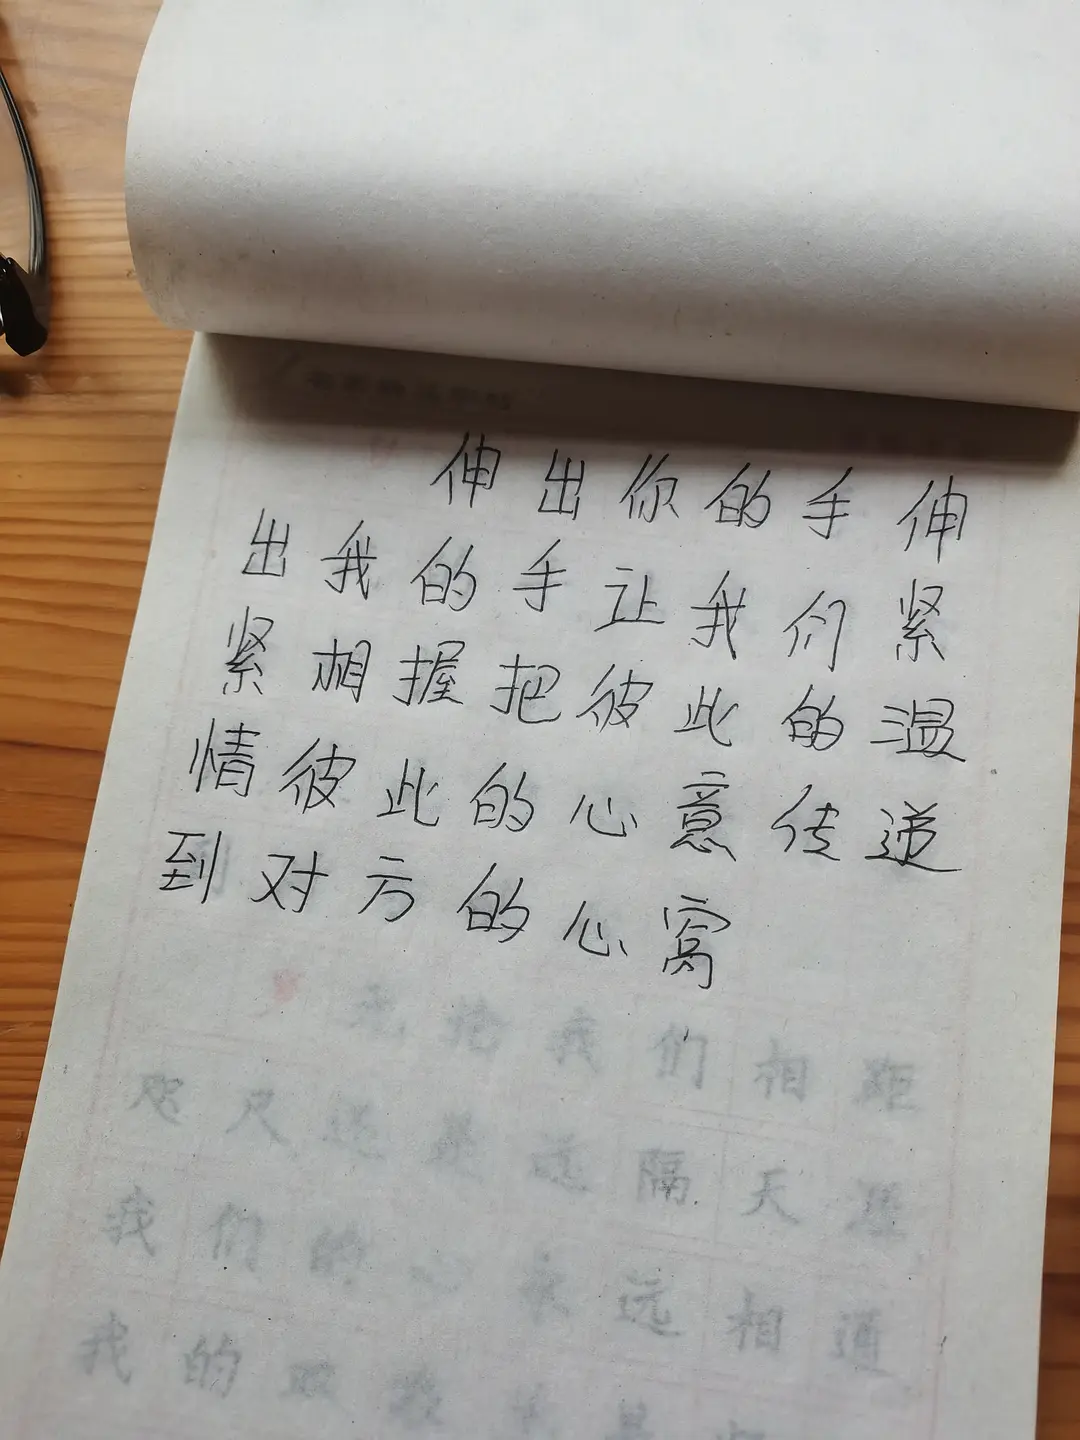 伸出你的手伸
出我的手让我们紧
紧相握把彼此的温
情彼此的心意传递
到对方的心窝
无论我们相距
咫尺还是远隔天涯
我们的心永远相通
我的